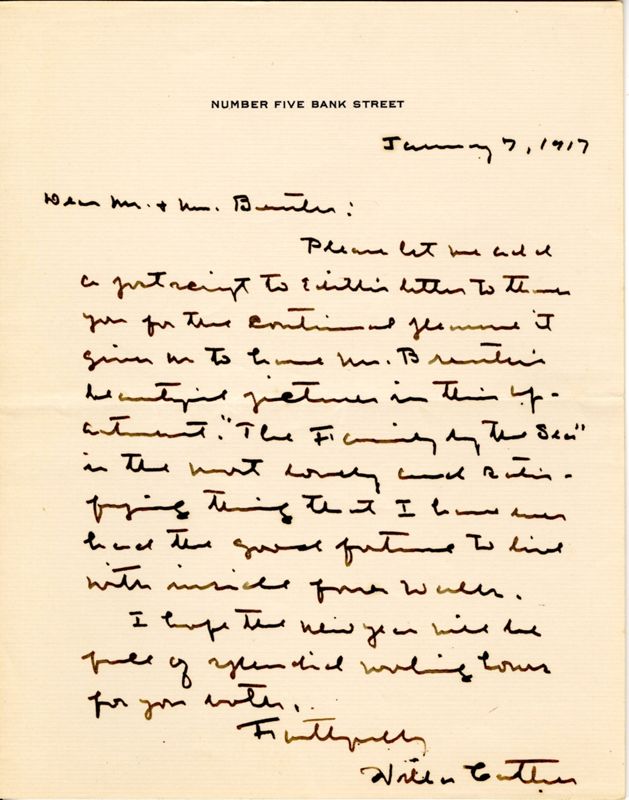 NUMBER FIVE BANK STREET
January 7, 1917
Dear Mr. & Mrs. Brewster:
Please let me add
a postscript to Edith's letter to thank
you for the continual pleasure it
gives me to have Mr. Brewster's
beautiful pictures in this ap-
artment. "The Family by the Sea"
is the most lovely and satis-
fying thing that I have ever
had the good fortune to live
with inside four walls.
I hope the new year will be
full of splendid working hours
for you both.
Faithfully
Willa Cather